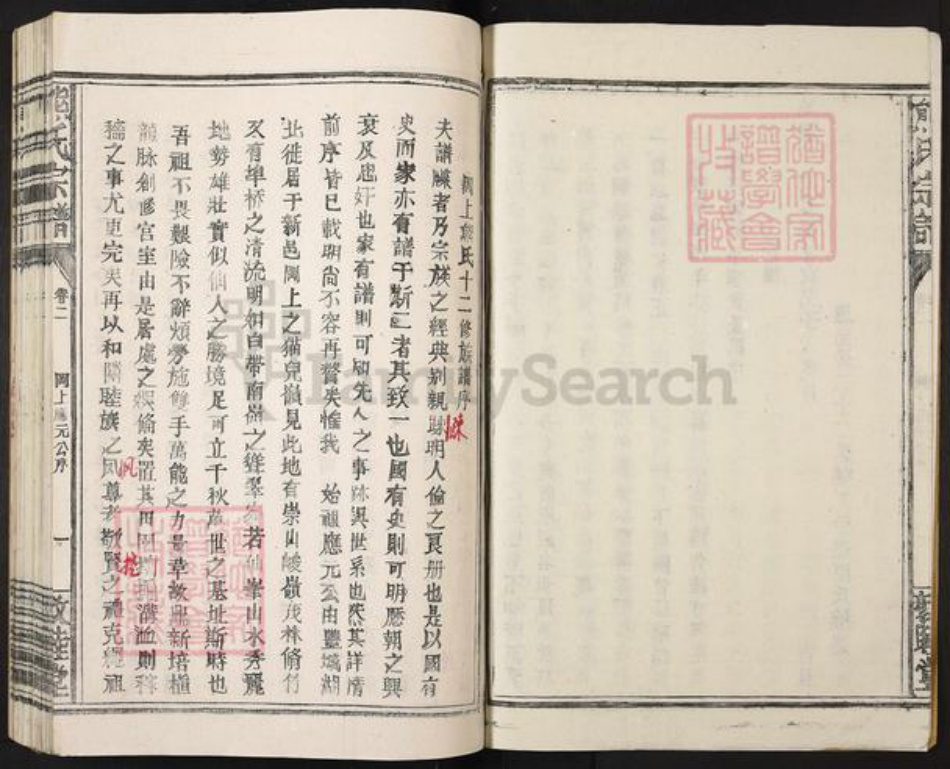 熊氏宗譜
猶他家譜學會收藏
敦睦堂
岡上熊氏十二修族譜序
夫譜牒者乃宗族之經典別親疎明人倫之良册也是以國有
史而家亦有譜于斯二者其致一也國有史則可明歷朝之興
衰及忠奸也家有譜則可知先人之事跡與世系也然其詳情
前序皆已載明尚不容再贅矣惟我 始祖應元公由豐城湖
北徙居于新邑岡上之猫兒嶺見此地有崇山峻嶺茂林脩竹
又有埠桥之清流明如白带南嶺之聳翠 若仙峯山水秀麗
地勢雄壯實似仙人之勝境足可立千秋萬世之基址斯時也
吾祖不畏艱險不辭煩勞施雙手萬能之力量革故鼎新培植
龍脉創修宮室由是居處之 脩矣置其田 溝洫則稼
穡之事尤更完美再以和隣睦族之风尊老敬賢之禮克繩祖
疎
风
熊氏宗譜
卷二
岡上應元公序
一
敦睦堂
FamilySearch